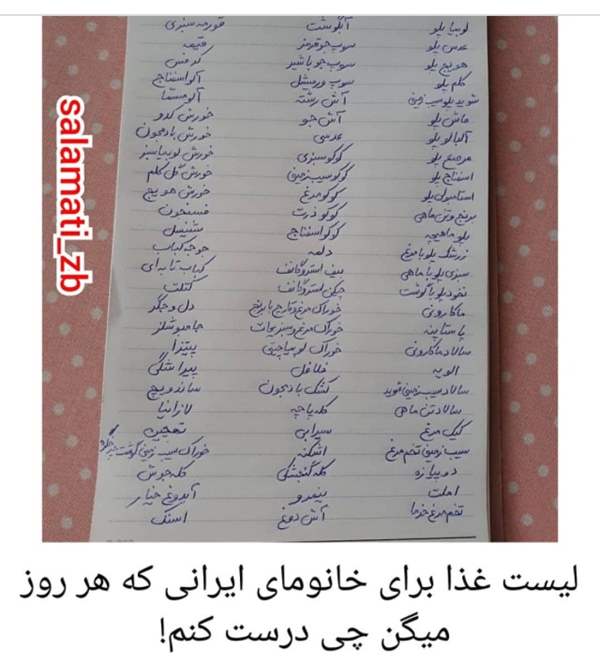 لوبیا پلو
عدس پلو
هویج پلو
کلم پلو
شوید پلو سیب زمینی
ماش پلو
آلبالو پلو
مرصع پلو
اسفناج پلو
استامبولی پلو
برنج و تن ماهی
پلو ماهیچه
زرشک پلو با مرغ
سبزی پلو با ماهی
نخود پلو با گوشت
ماکارونی
پاستا پنه
سالاد ماکارونی
الویه
سالاد سیب زمینی شوید
سالاد تن ماهی
کیک مرغ
سیب زمینی تخم مرغ
دوپیازه
املت
تخم مرغ خرما
آبگوشت
سوپ جو قرمز
سوپ جو با شیر
سوپ ورمیشل
آش رشته
آش جو
عدسی
کوکو سبزی
کوکو سیب زمینی
کوکو مرغ
کوکو ذرت
کوکو اسفناج
دلمه
بیف استروگانف
چیکن استروگانف
خوراک مرغ و قارچ با برنج
خوراک مرغ و سبزیجات
خوراک لوبیا چیتی
فلافل
کشک بادمجون
کله پاچه
سیرابی
اشکنه
کله گنجشکی
نیمرو
آش دوغ
قورمه سبزی
قیمه
کرفس
آلو اسفناج
آلو مسما
خورش کدو
خورش بادمجون
خورش لوبیا سبز
خورش گل کلم
خورش هویج
فسنجون
شنیسل
جوجه کباب
کباب تابه ای
کتلت
دل و جگر
همبرگر
پیتزا
پیراشگی
ساندویچ
لازانیا
ته‌چین
خوراک سیب زمینی گوشت
کله جوش
آبدوغ خیار
اسنک
salamati_zb
لیست غذا برای خانومای ایرانی که هر روز
میگن چی درست کنم!